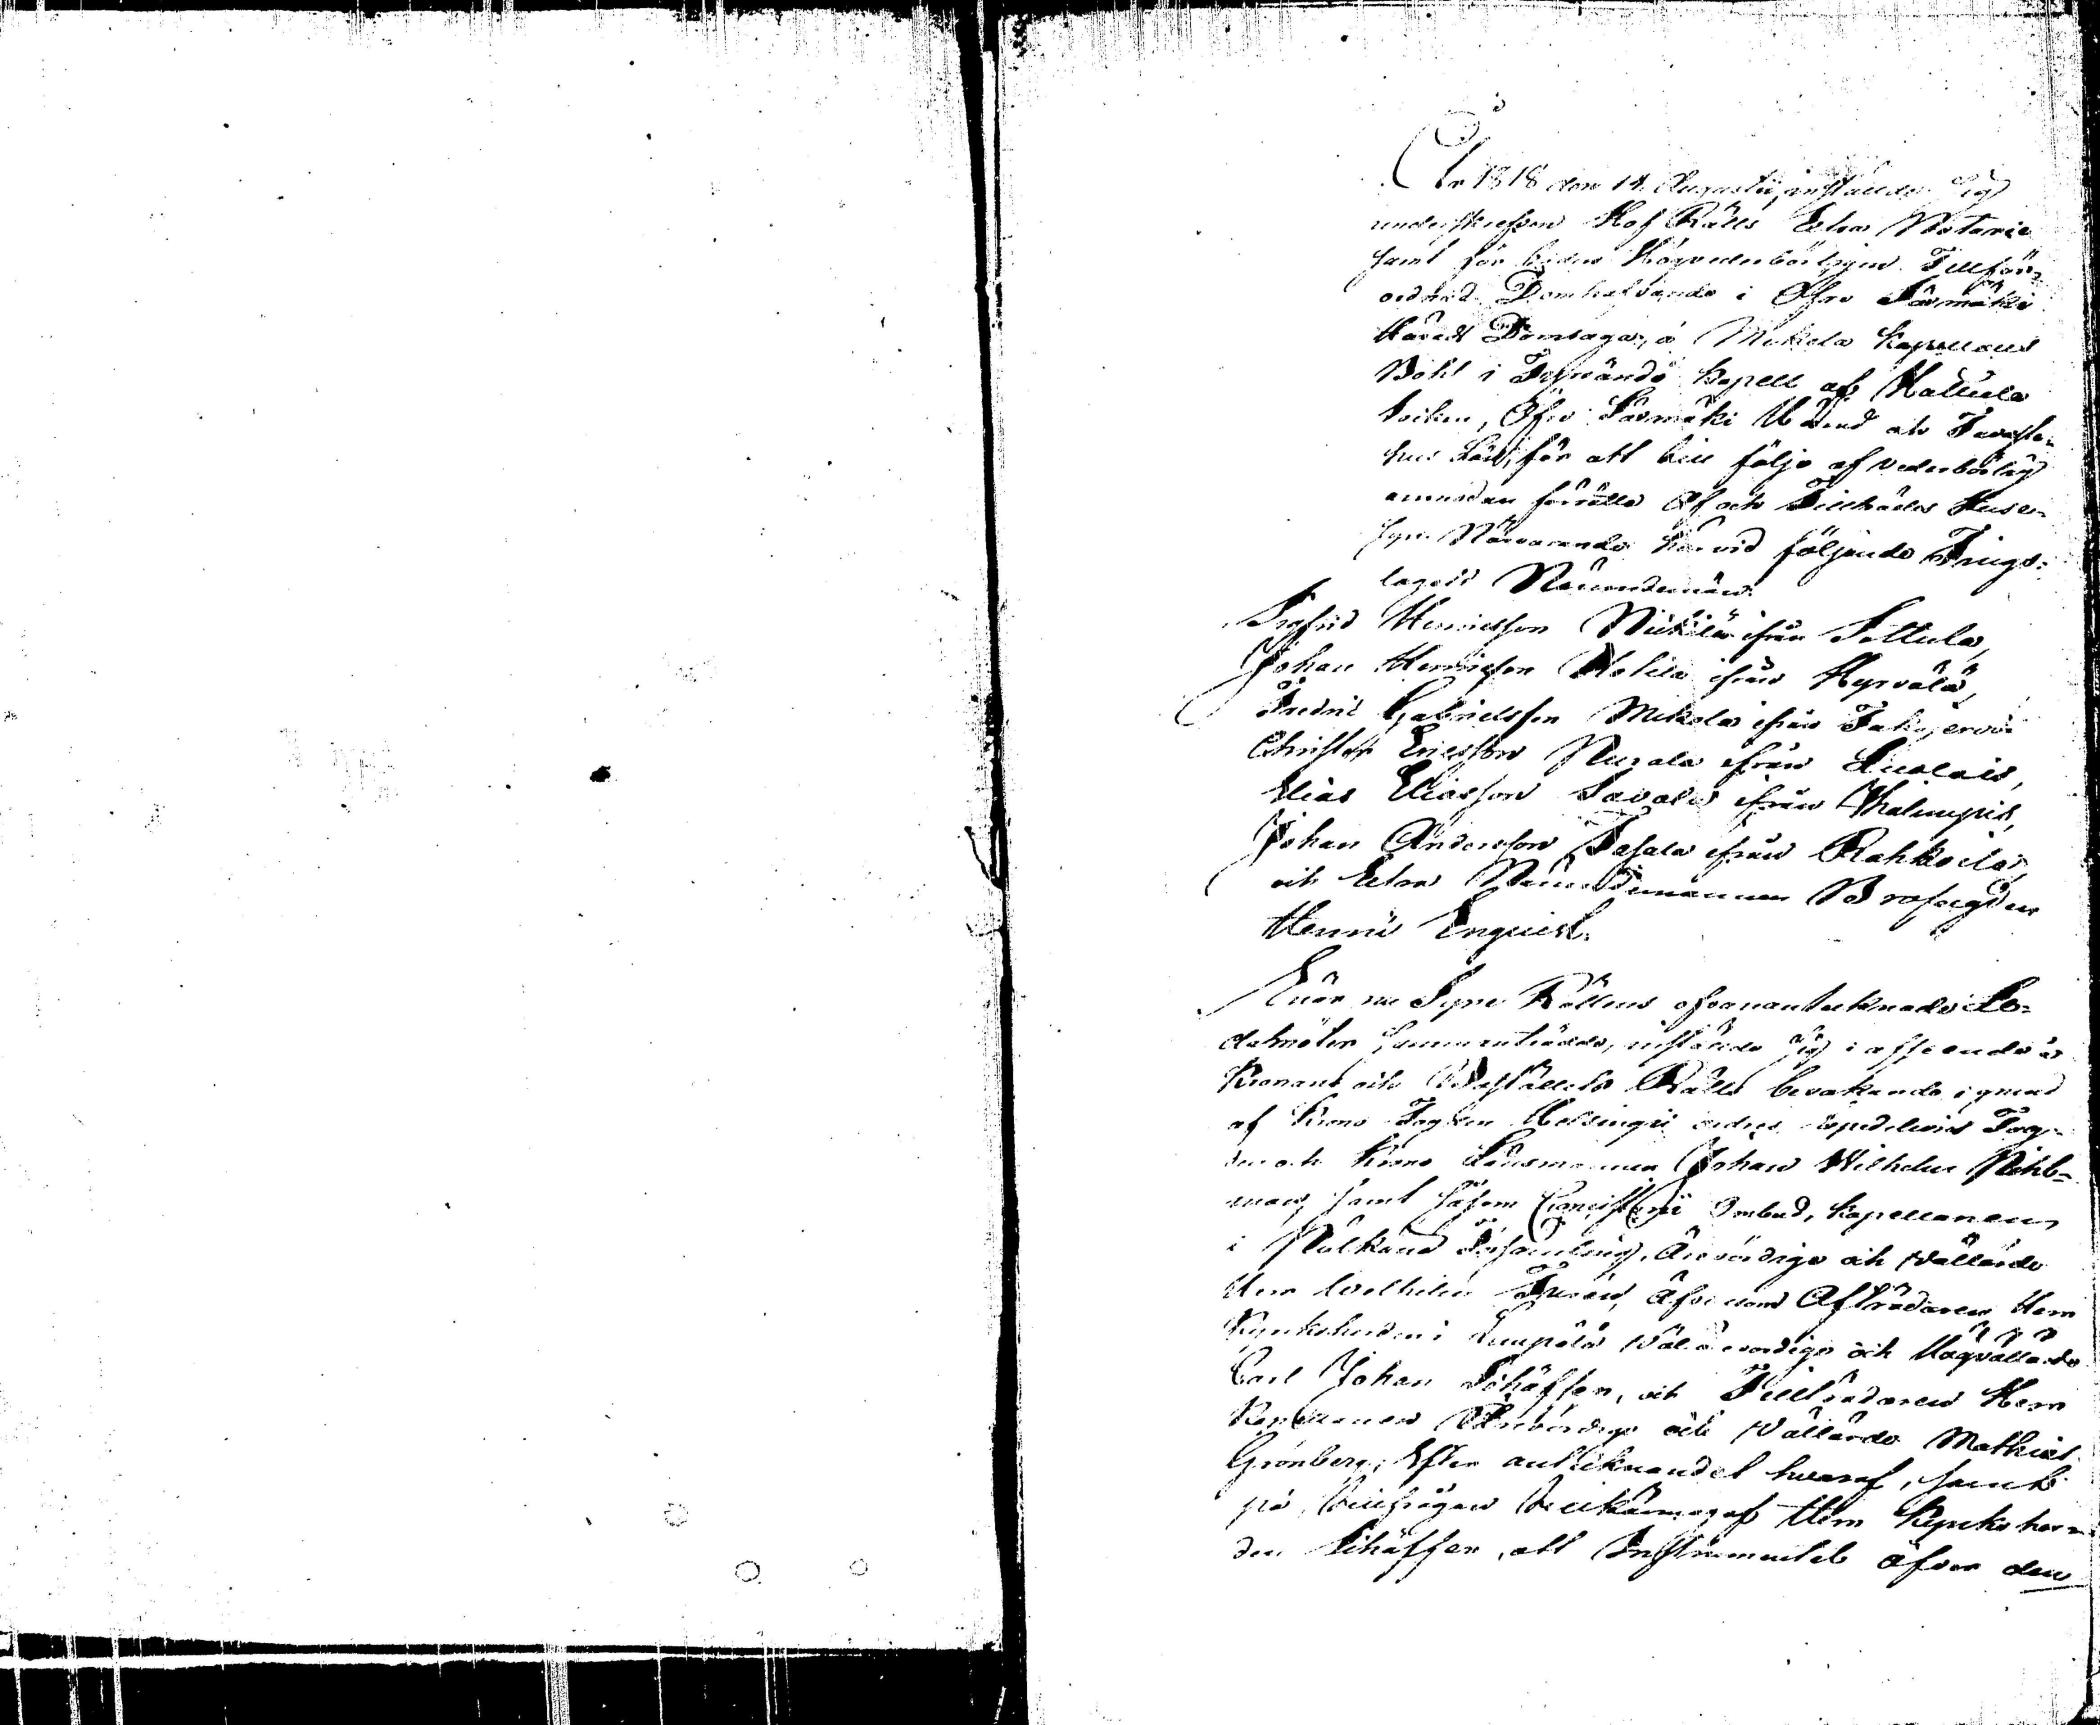 År 1818 den 14 Augustii, instälde Sig
underskrefven Hof Rätts Extra Notarie
samt för tiden Högvederbörligen Tillför-
ordnad Domhafvande i Öfre Säxmäki
Härads Domsaga, å Mikola Kapellans
Bohl i Kapell af Hattula
Socken, Öfre Säxmäki Härad och Tavaste-
hus Län, för att till följe af vederbörlig
anmodan förrätta Af och Tillträdes Huse-
syn. Närvarande härvid följande Tings-
lagets Nämndemän
Sigfrid Henricsson Nickilä ifrån Sattula,
Johan Henricsson Hokila ifrån Hyrvälä,
Fredric Gabrielsson Mikola ifrån
Christer Ericsson ifrån
Elias Eliasson Savola ifrån
Johan Andersson ifrån Rahkoila,
och Extra Nämndemannen Brofogden
Henric Enqvist.
Enär nu Syne Rätten ofvanantecknade Le-
damöter sammanträdde, instälde Sig i afseende å
Kronans och Boställets Rätts bevakande i grund
af Krono Fogden Helsingii Fog-
den och Krono Länsmannen Johan Wilhelm Pihl-
man, samt såsom Consistorii Ombud, Kapellanen
i Pälkäne Församling, Ärevördige och Vällärde
Herr Wilhelm äfvensom Afträdaren Herr
Kyrkoherden i Lempälä Välärevördige och Högvällärde
Carl Johan Schäffer, och Tillträdaren Herr
Kapellanen Ärevördige och Vällärde Mathias
Grönberg; Efter antecknandet hvaraf, samt
på tillfrågan tillkännagaf Herr Kyrkoher-
den Schäffer, att Instrumentet öfver den